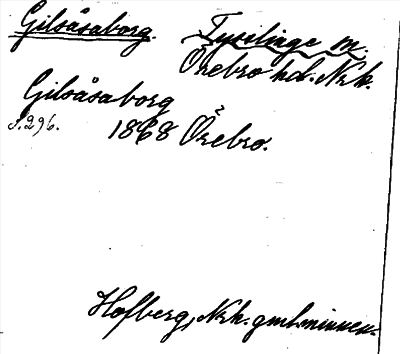 Gilsåsaborg. Tysslinge sn.
Örebro hd. Nrk.
Gilsåsaborg
s. 296. 1868 Örebro.
Hofberg, Nrk. gml. minnen.